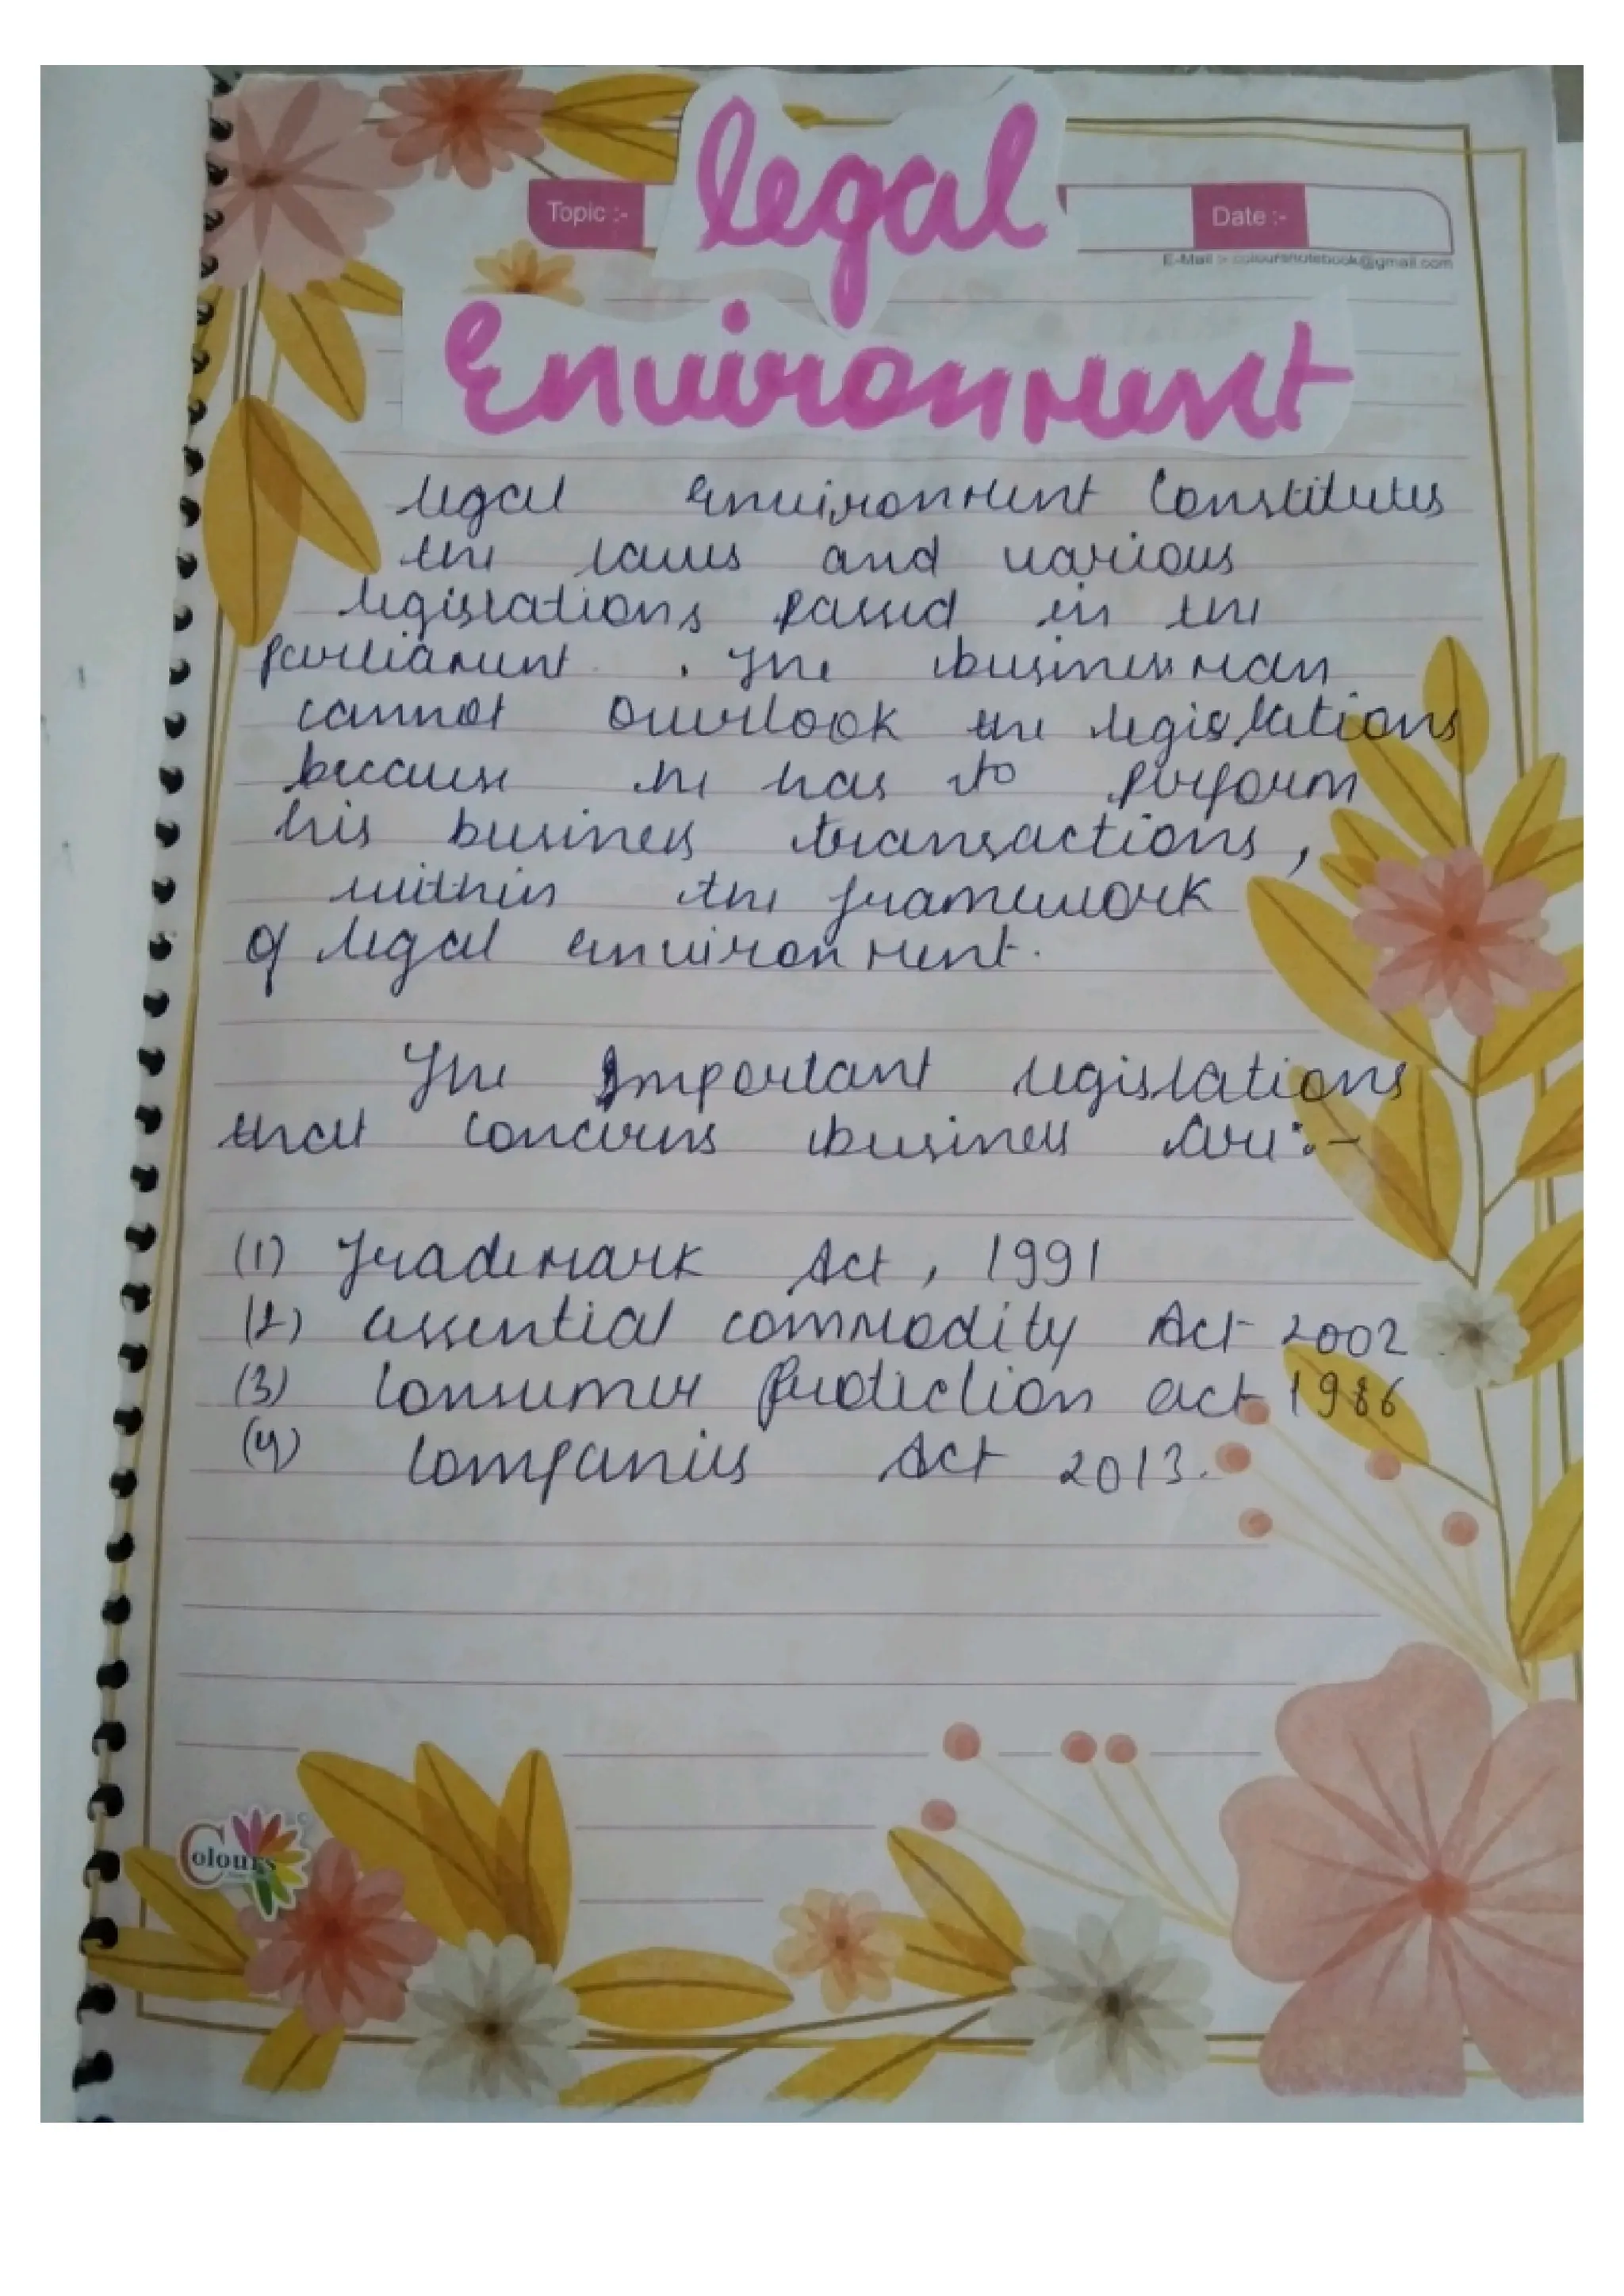 legal
Topic :-
Date :-
E-Mail :- coloursnotebook@gmail.com
Environment
legal Environment Constitutes
the laws and various
legislations passed in the
parliament . The businessman
cannot overlook the legislations
because he has to perform
his business transactions,
within the framework
of legal environment.
The Important legislations
that concerns business are:-
(1) Trademark Act, 1991
(2) essential commodity Act 2002
(3) Consumer Protection act 1986
(4) Companies Act 2013.
Colours